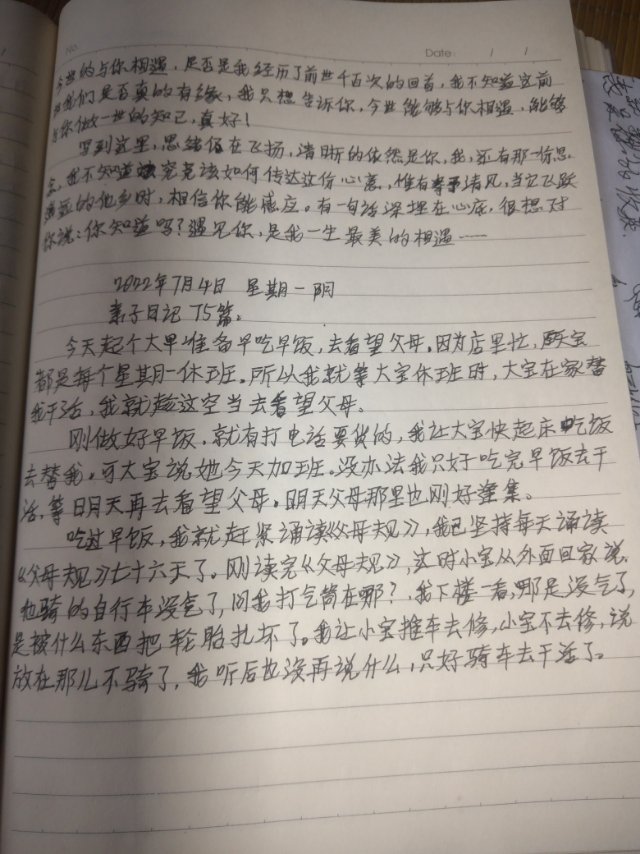 No.
Date / /
今世的与你相遇，是否是我经历了前世千百次的回首，我不知道这前
我们是否真的有缘，我只想告诉你，今世能够与你相遇，能够
与你做一世的知己，真好！
写到这里，思绪仍在飞扬，清晰的依然是你，我，还有那一份思
念。我不知道究竟该如何传达这份心意，惟有清风，当它飞跃
的他乡时，相信你能感应。有一句话深埋在心底，很想对
你说：你知道吗？遇见你，是我一生最美的相遇……
2022年7月4日 星期一阴
亲子日记 75篇。
今天起个大早准备早吃早饭，去看望父母。因为店里忙，大宝
都是每个星期一休班。所以我就等大宝休班时，大宝在家替
我干活，我就趁这空当去看望父母。
刚做好早饭，就有打电话要货的，我让大宝快起床吃饭
去替我。可大宝说她今天加班。没办法我只好吃完早饭去干
活，等明天再去看望父母。明天父母那里也刚好逢集。
吃过早饭，我就赶紧诵读《父母规》，我已坚持每天诵读
《父母规》七十六天了。刚读完《父母规》，这时小宝从外面回家说，
他骑的自行车没气了，问我打气筒在哪？我下楼一看，哪是没气了，
是被什么东西把轮胎扎坏了。我让小宝推车去修，小宝不去修，说
放在那儿不骑了，我听后也没再说什么，只好骑车去干活了。